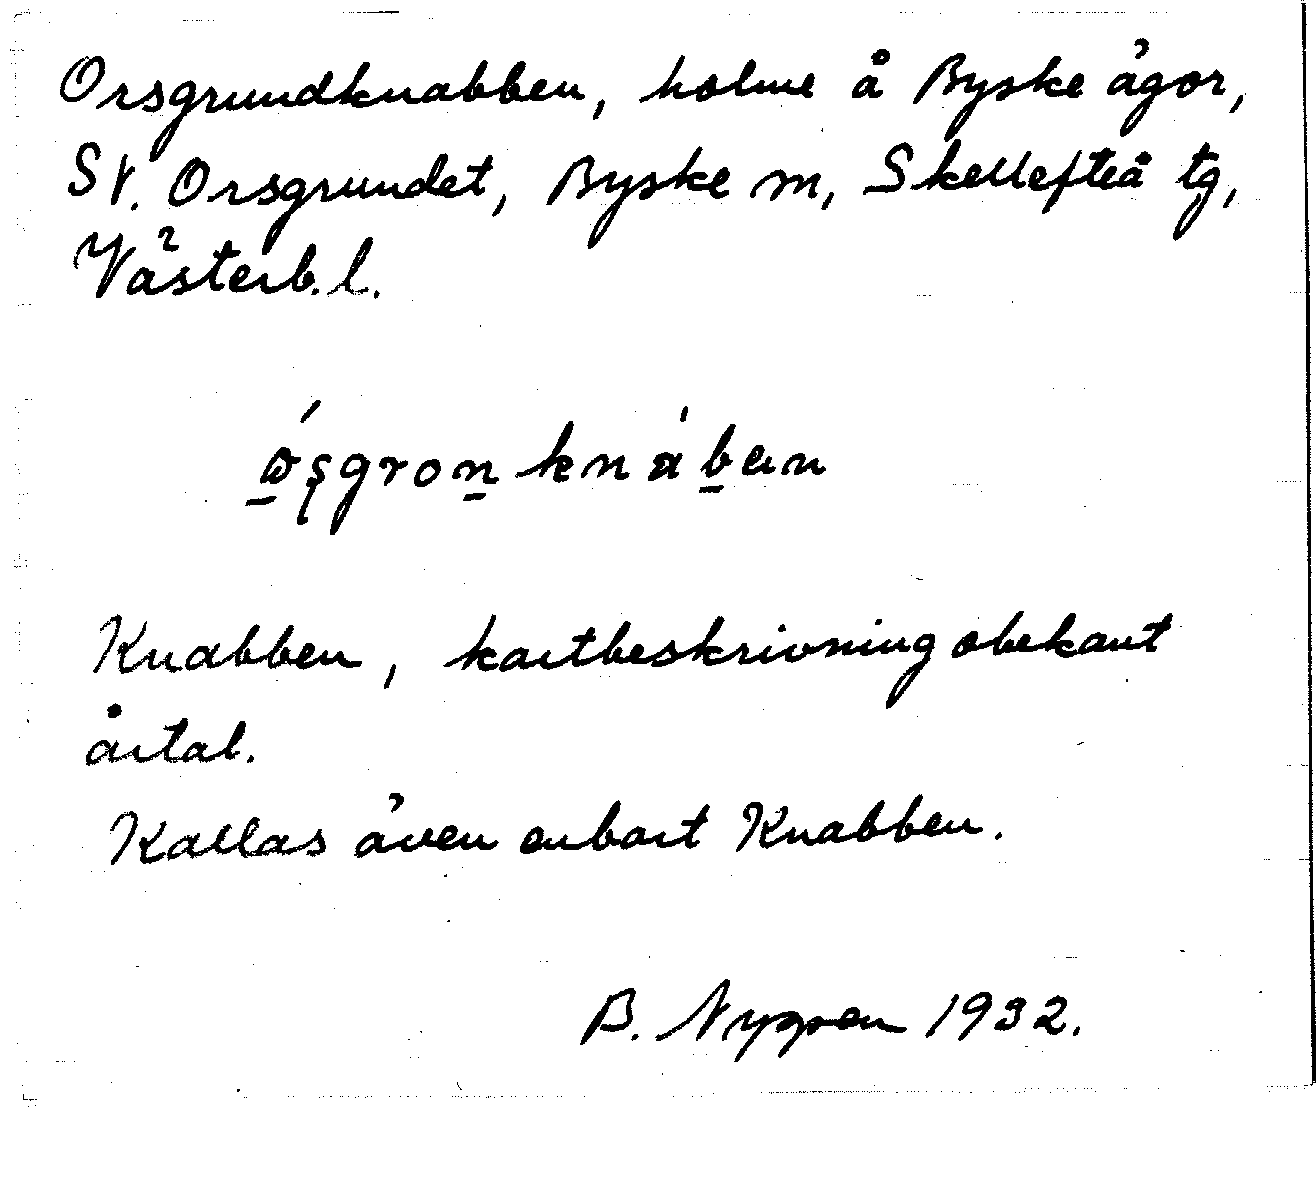 Orsgrundknabben, holme å Byske ägor,
SV. Orsgrundet, Byske sn, Skellefteå tg,
Västerb. l.
Knabben, kartbeskrivning obekant
årtal.
Kallas även enbart Knabben.
B. Nygren 1932.